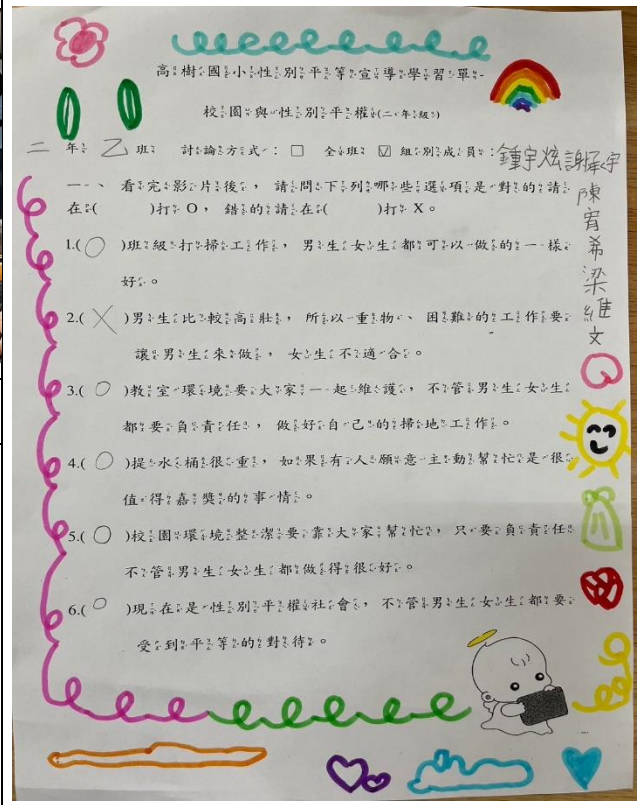 高樹國小性別平等宣導學習單-
校園與性別平權(二年級)
二 年 乙 班 討論方式： □ 全班 ☑ 組別成員：鍾宇炫謝承宇
陳宥希梁維文
一、 看完影片後， 請問下列哪些選項是對的請
在( )打 O， 錯的請在( )打 X。
1.(○ )班級打掃工作， 男生女生都可以做的一樣
好。
2.(╳ )男生比較高壯， 所以重物、 困難的工作要
讓男生來做， 女生不適合。
3.( ○ )教室環境要大家一起維護， 不管男生女生
都要負責任， 做好自己的掃地工作。
4.( ○ )提水桶很重， 如果有人願意主動幫忙是很
值得嘉獎的事情。
5.( ○ )校園環境整潔要靠大家幫忙， 只要負責任
不管男生女生都做得很好。
6.( ○ )現在是性別平權社會， 不管男生女生都要
受到平等的對待。